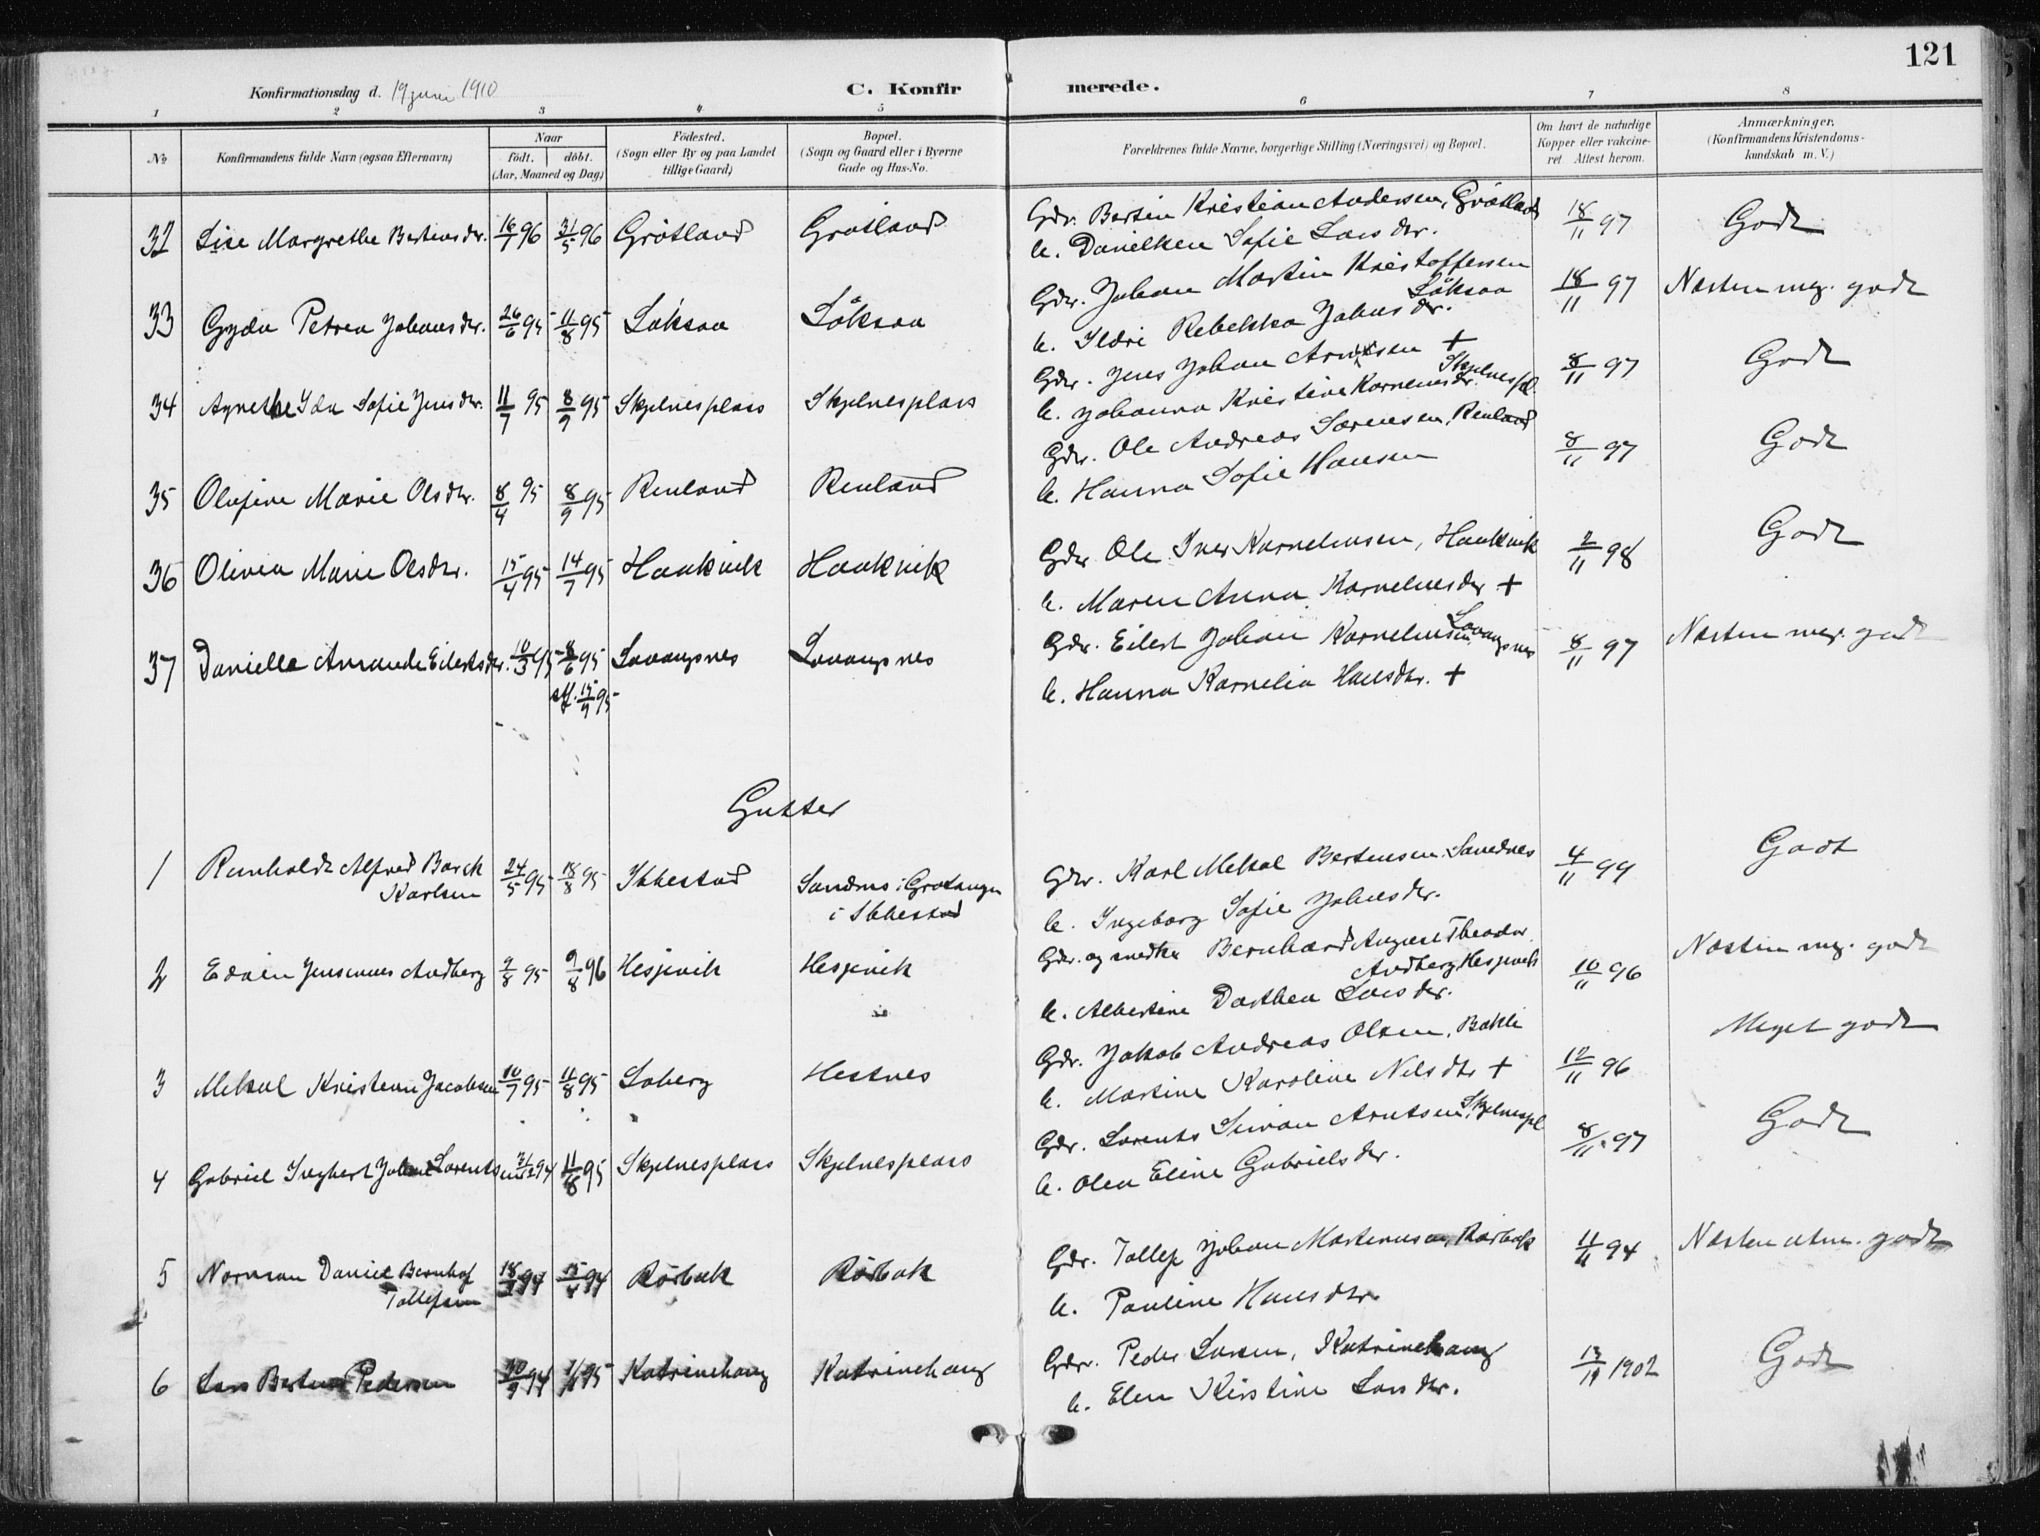 121
Konfirmationsdag d. 19 juni 1910
C. Konfirmerede.
1 2 3 4 5 6 7 8
No
Konfirmandens fulde Navn (ogsaa Efternavn)
Naar
födt. döbt.
(Aar, Maaned og Dag)
Födested.
(Sogn eller By og paa Landet
tillige Gaard)
Bopæl.
(Sogn og Gaard eller i Byerne
Gade og Hus-No.
Forældrenes fulde Navne, borgerlige Stilling (Næringsvei) og Bopæl.
Om havt de naturlige
Kopper eller vakcine-
ret. Attest herom.
Anmærkninger.
(Konfirmandens Kristendoms-
kundskab m. V.)
32 Lise Margrethe Bertinsdr. 16/1 96 31/5 96 Gråtland Gråtland Gdr. Bertin Kristian Andersen, Gråtland 18/11 97 Godt
h. Danilken Sofie Larsdr.
33 Gyda Petrea Johansdr. 26/6 95 11/8 95 Löksaa Löksaa Gdr. Johan Martin Kristoffersen 18/11 97 Næsten meg. godt
Löksaa
h. Ildri Rebekka Johnsdr.
34 Agnethe Ida Sofie Jensdr. 11/7 95 8/9 95 Skjelnesplass Skjelnesplass Gdr. Jens Johan Arntsen + 8/11 97 Godt
Skjelnespl.
h. Johanna Kristine Korneliusdr.
35 Olufine Marie Olsdtr. 8/4 95 8/9 95 Renland Renland Gdr. Ole Andreas Sørensen, Renland 8/11 97 Godt
h. Hanna Sofie Hansen
36 Olivia Marie Olsdtr. 15/4 95 14/7 95 Haakvik Haakvik Gdr. Ole Iver Kornelinsen, Haakvik 2/11 98 Godt
h. Maren Anna Kornelinsdr +
37 Danielle Amanda Eilertsdr. 10/3 95 8/6 95 Lavangsnes Lavangsnes Gdr. Eilert Johan Kornelinsen Lavangsnes 8/11 97 Næsten meg. godt
stf. 15/9 95
h. Hanna Kornelia Hansdtr. +
Gutter
1 Reinholdt Alfred Barck 24/5 95 18/8 95 Ibbestad Sandnes i Gratangen Gdr. Karl Mekal Bertinsen, Sandnes 4/11 99 Godt
Karlsen i Ibbestad
h. Ingeborg Sofie Johnsdr.
2 Edvin Jensenius Andberg 9/8 95 9/8 96 Hesjevik Hesjevik Gdr. og smed Bernhard August Theodor 10/11 96 Næsten mg. godt
Andberg Hesjevik
h. Albertine Dorthea Larsdr.
3 Mekal Kristian Jacobsen 10/7 95 11/8 95 Soberg Hestnes Gdr. Jakob Andreas Olsen, Bakli 12/11 96 Meget godt
h. Martine Karoline Nilsdtr +
4 Gabriel Ingbert Johan Lorentsen 3/12 94 11/8 95 Skjelnesplass Skjelnesplass Gdr. Lorents Simon Arntsen, Skjelnespl 8/11 97 Godt
h. Olea Eline Gabrielsdr.
5 Norman Daniel Bernhof 94 15/4 94 Rörbak Rörbak Gdr. Tollef Johan Martinusen, Rörbak 11/11 94 Næsten utm. godt
Tollefsen
h. Pauline Hansdtr.
6 Lars Bertin Pedersen 30/9 94 95 Katrinehaug Katrinehaug Gdr. Peder Larsen, Katrinehaug 1902 Godt
h. Elen Kirstine Larsdtr.